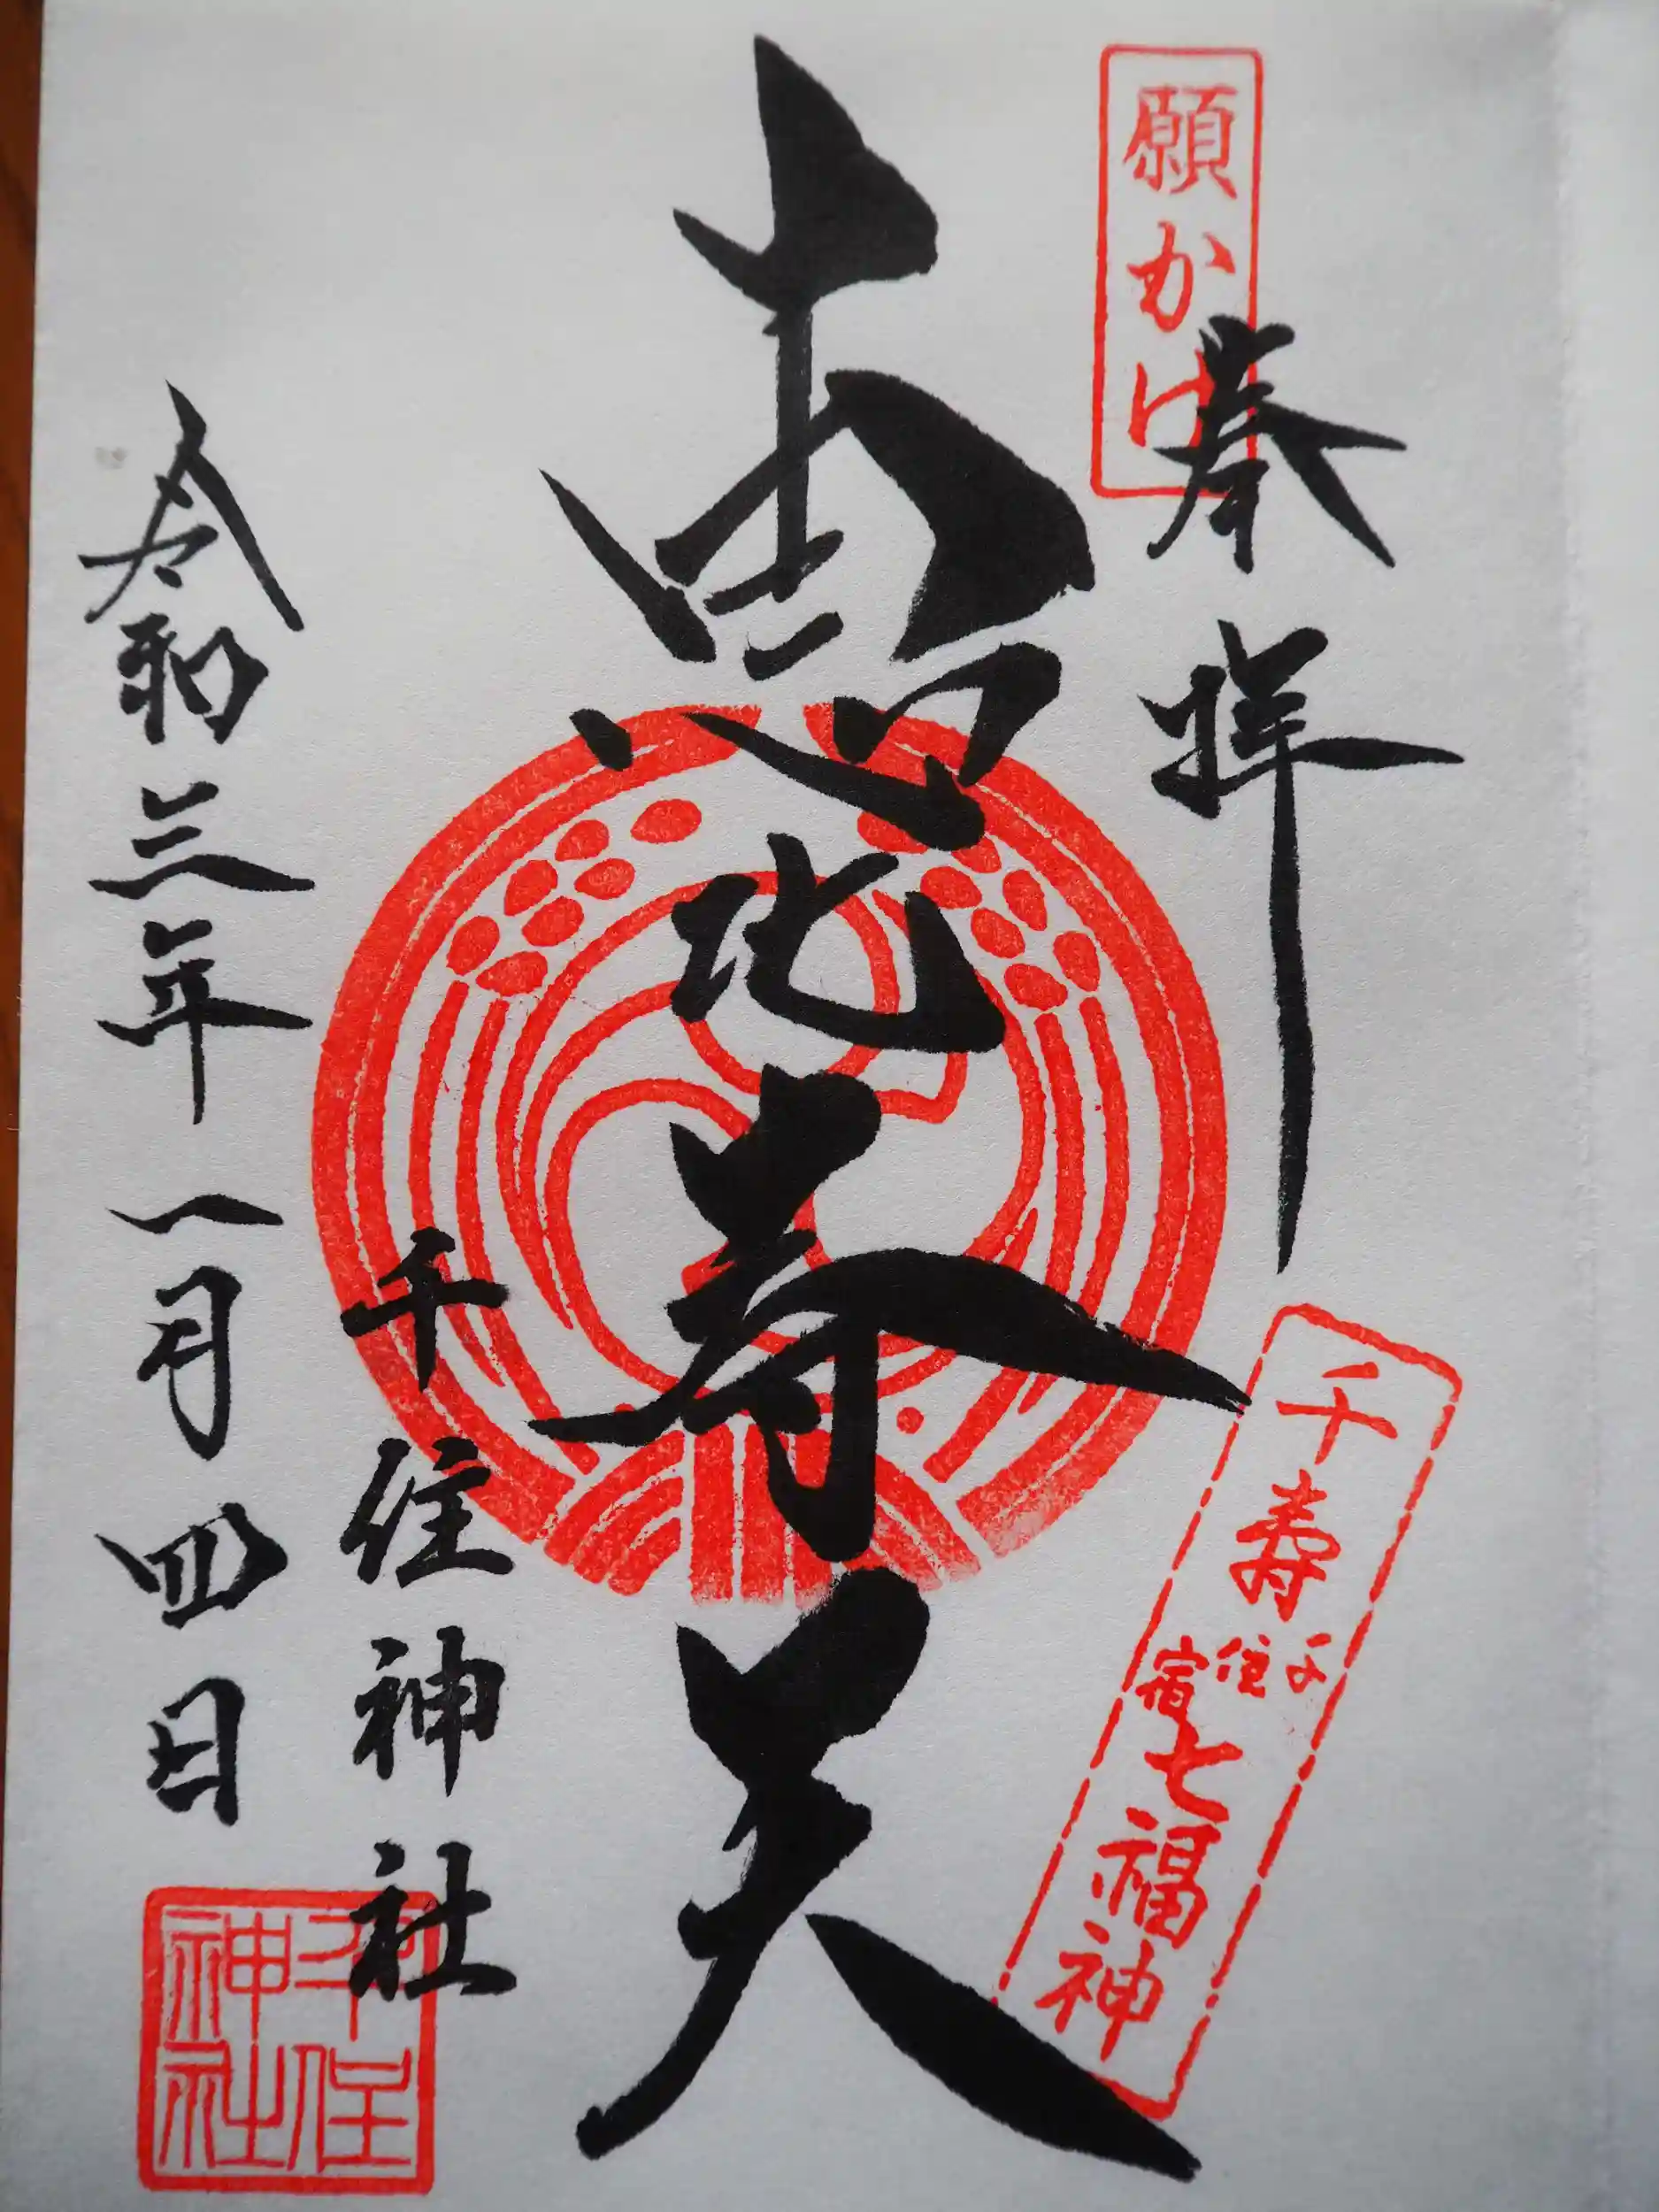 願かけ
奉拝
千寿
千住宿
七福神
恵比寿天
千住神社
令和三年一月四日
千住
神社